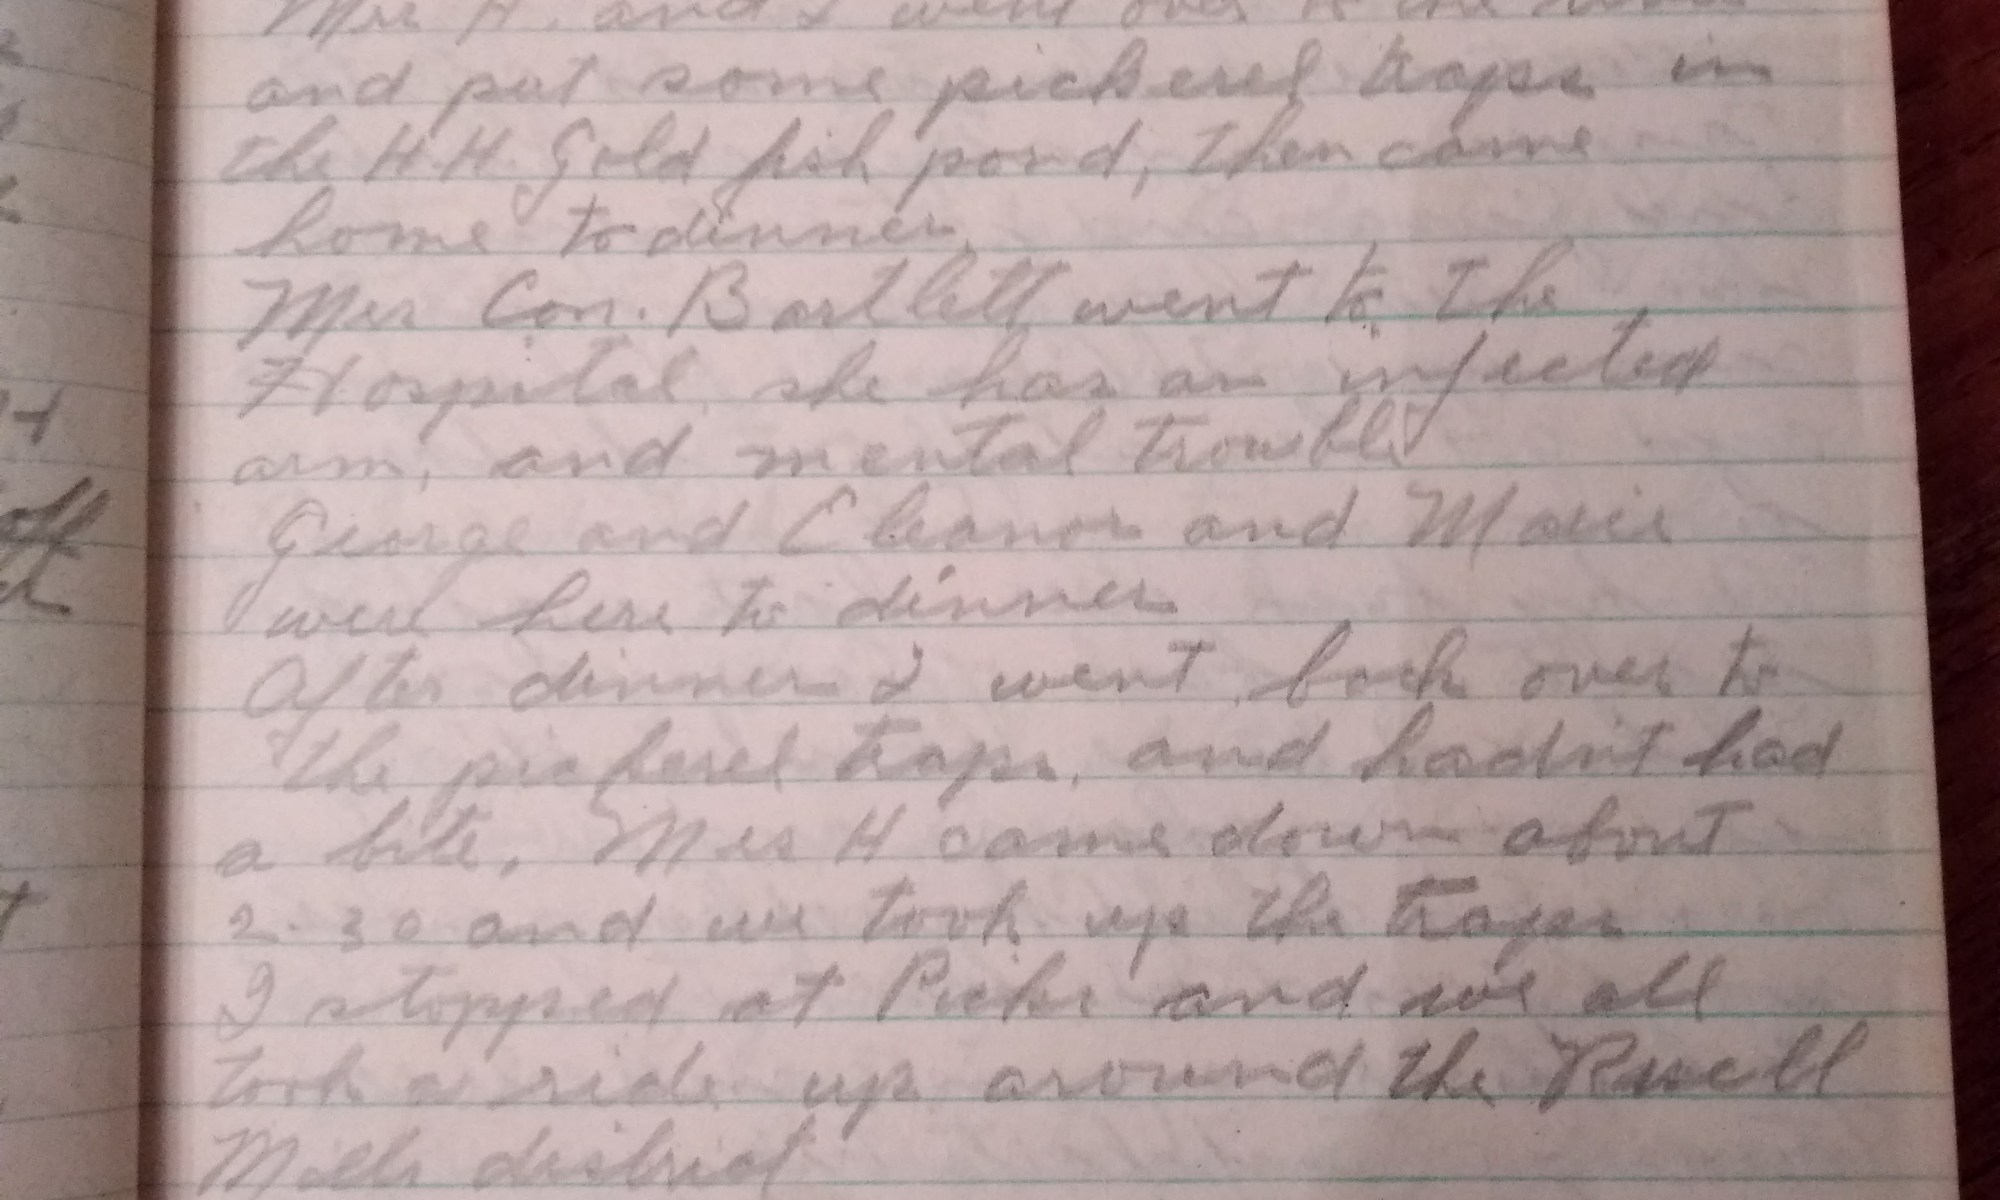 Mrs H. and I went over to the
and put some pickerel traps in
the H.H. Gold fish pond, then came
home to dinner.
Mrs Con. Bartlett went to the
Hospital, she has an infected
arm, and mental trouble
George and Eleanor and Marie
were here to dinner
After dinner I went back over to
the pickerel traps, and hadn't had
a bite, Mrs H came down about
2.30 and we took up the traps
I stopped at Picks and we all
took a ride up around the
Mills district